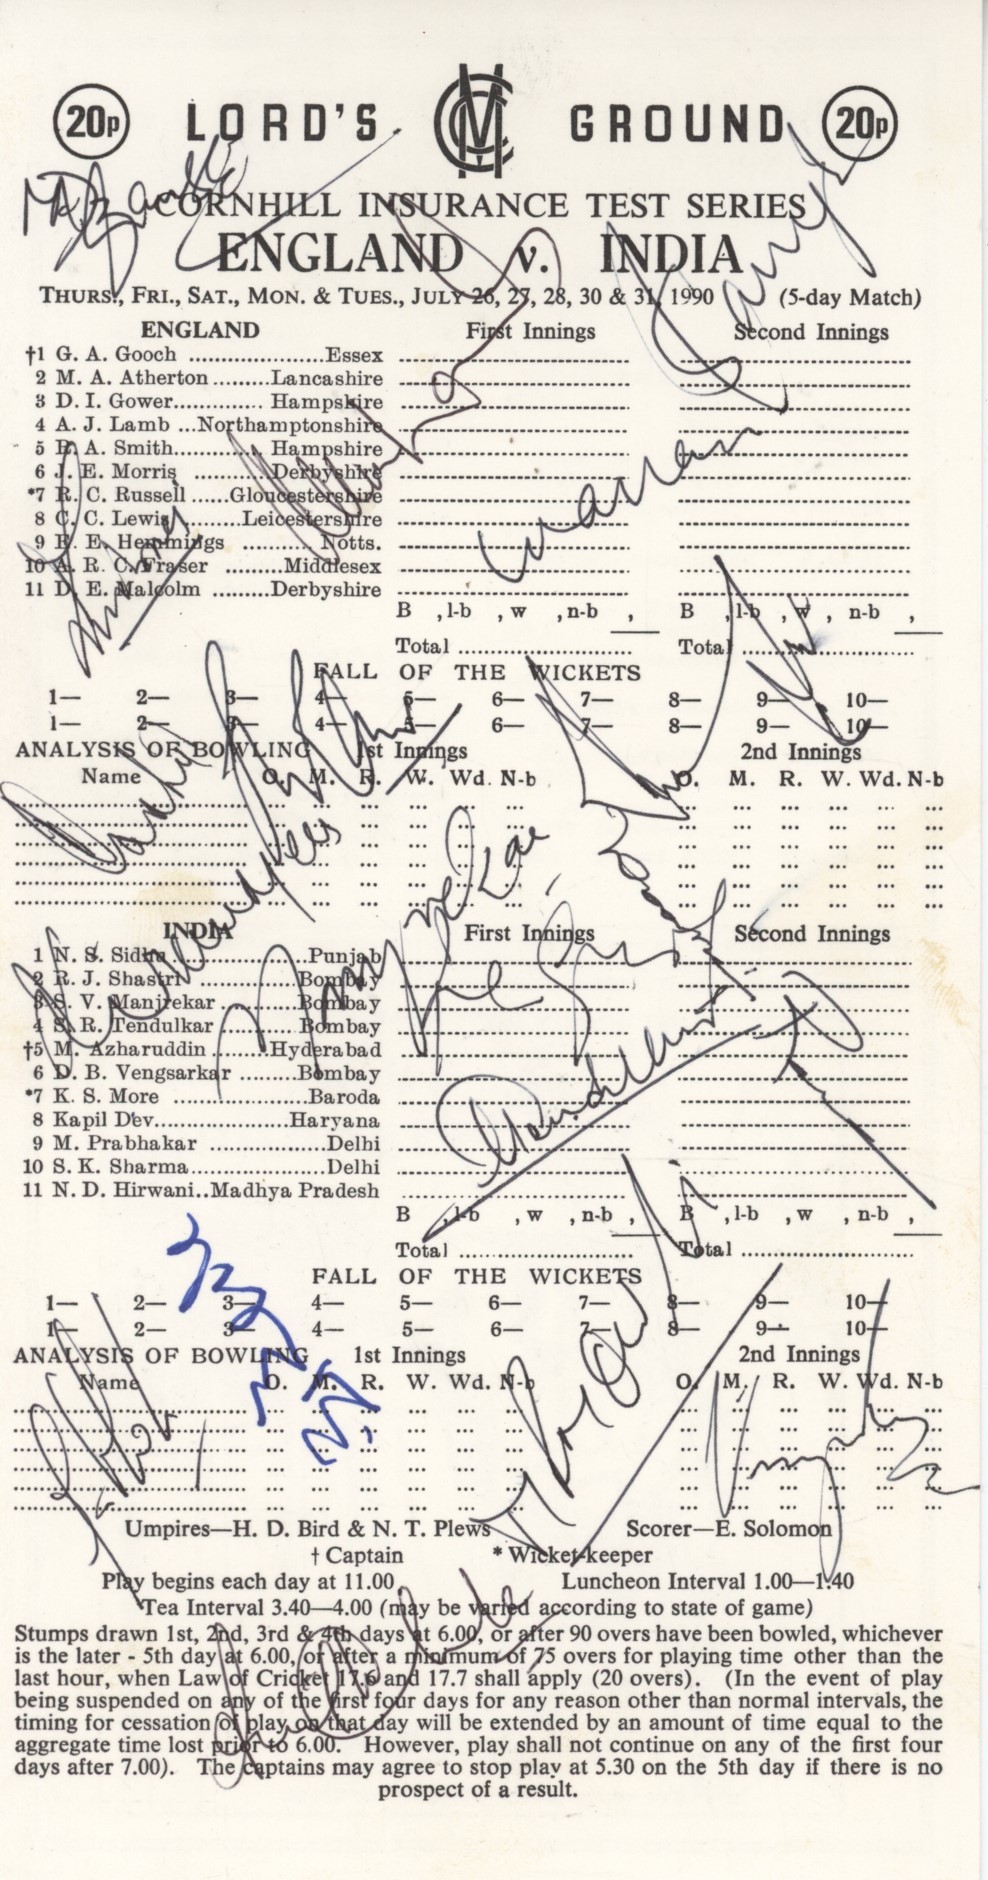 20p LORD'S MCC GROUND 20p
CORNHILL INSURANCE TEST SERIES
ENGLAND v. INDIA
THURS., FRI., SAT., MON. & TUES., JULY 26, 27, 28, 30 & 31, 1990 (5-day Match)
ENGLAND First Innings Second Innings
†1 G. A. Gooch ......................Essex
2 M. A. Atherton .........Lancashire
3 D. I. Gower............. Hampshire
4 A. J. Lamb ...Northamptonshire
5 R. A. Smith............. Hampshire
6 J. E. Morris ...........Derbyshire
*7 R. C. Russell ......Gloucestershire
8 C. C. Lewis .........Leicestershire
9 E. E. Hemmings .......... Notts.
10 A. R. C. Fraser .........Middlesex
11 D. E. Malcolm .........Derbyshire
B , l-b , w , n-b , B , l-b , w , n-b ,
Total .......................... Total ..........................
FALL OF THE WICKETS
1— 2— 3— 4— 5— 6— 7— 8— 9— 10—
1— 2— 3— 4— 5— 6— 7— 8— 9— 10—
ANALYSIS OF BOWLING 1st Innings 2nd Innings
Name O. M. R. W. Wd. N-b O. M. R. W. Wd. N-b
INDIA First Innings Second Innings
1 N. S. Sidhu ....................Punjab
2 R. J. Shastri ..................Bombay
3 S. V. Manjrekar ............Bombay
4 S. R. Tendulkar ............Bombay
†5 M. Azharuddin .........Hyderabad
6 D. B. Vengsarkar .........Bombay
*7 K. S. More ..................Baroda
8 Kapil Dev.....................Haryana
9 M. Prabhakar ..................Delhi
10 S. K. Sharma....................Delhi
11 N. D. Hirwani..Madhya Pradesh
B , l-b , w , n-b , B , l-b , w , n-b ,
Total .......................... Total ..........................
FALL OF THE WICKETS
1— 2— 3— 4— 5— 6— 7— 8— 9— 10—
1— 2— 3— 4— 5— 6— 7— 8— 9— 10—
ANALYSIS OF BOWLING 1st Innings 2nd Innings
Name O. M. R. W. Wd. N-b O. M. R. W. Wd. N-b
Umpires—H. D. Bird & N. T. Plews Scorer—E. Solomon
† Captain * Wicket-keeper
Play begins each day at 11.00 Luncheon Interval 1.00—1.40
Tea Interval 3.40—4.00 (may be varied according to state of game)
Stumps drawn 1st, 2nd, 3rd & 4th days at 6.00, or after 90 overs have been bowled, whichever
is the later - 5th day at 6.00, or after a minimum of 75 overs for playing time other than the
last hour, when Law of Cricket 17.6 and 17.7 shall apply (20 overs). (In the event of play
being suspended on any of the first four days for any reason other than normal intervals, the
timing for cessation of play on that day will be extended by an amount of time equal to the
aggregate time lost prior to 6.00. However, play shall not continue on any of the first four
days after 7.00). The captains may agree to stop play at 5.30 on the 5th day if there is no
prospect of a result.